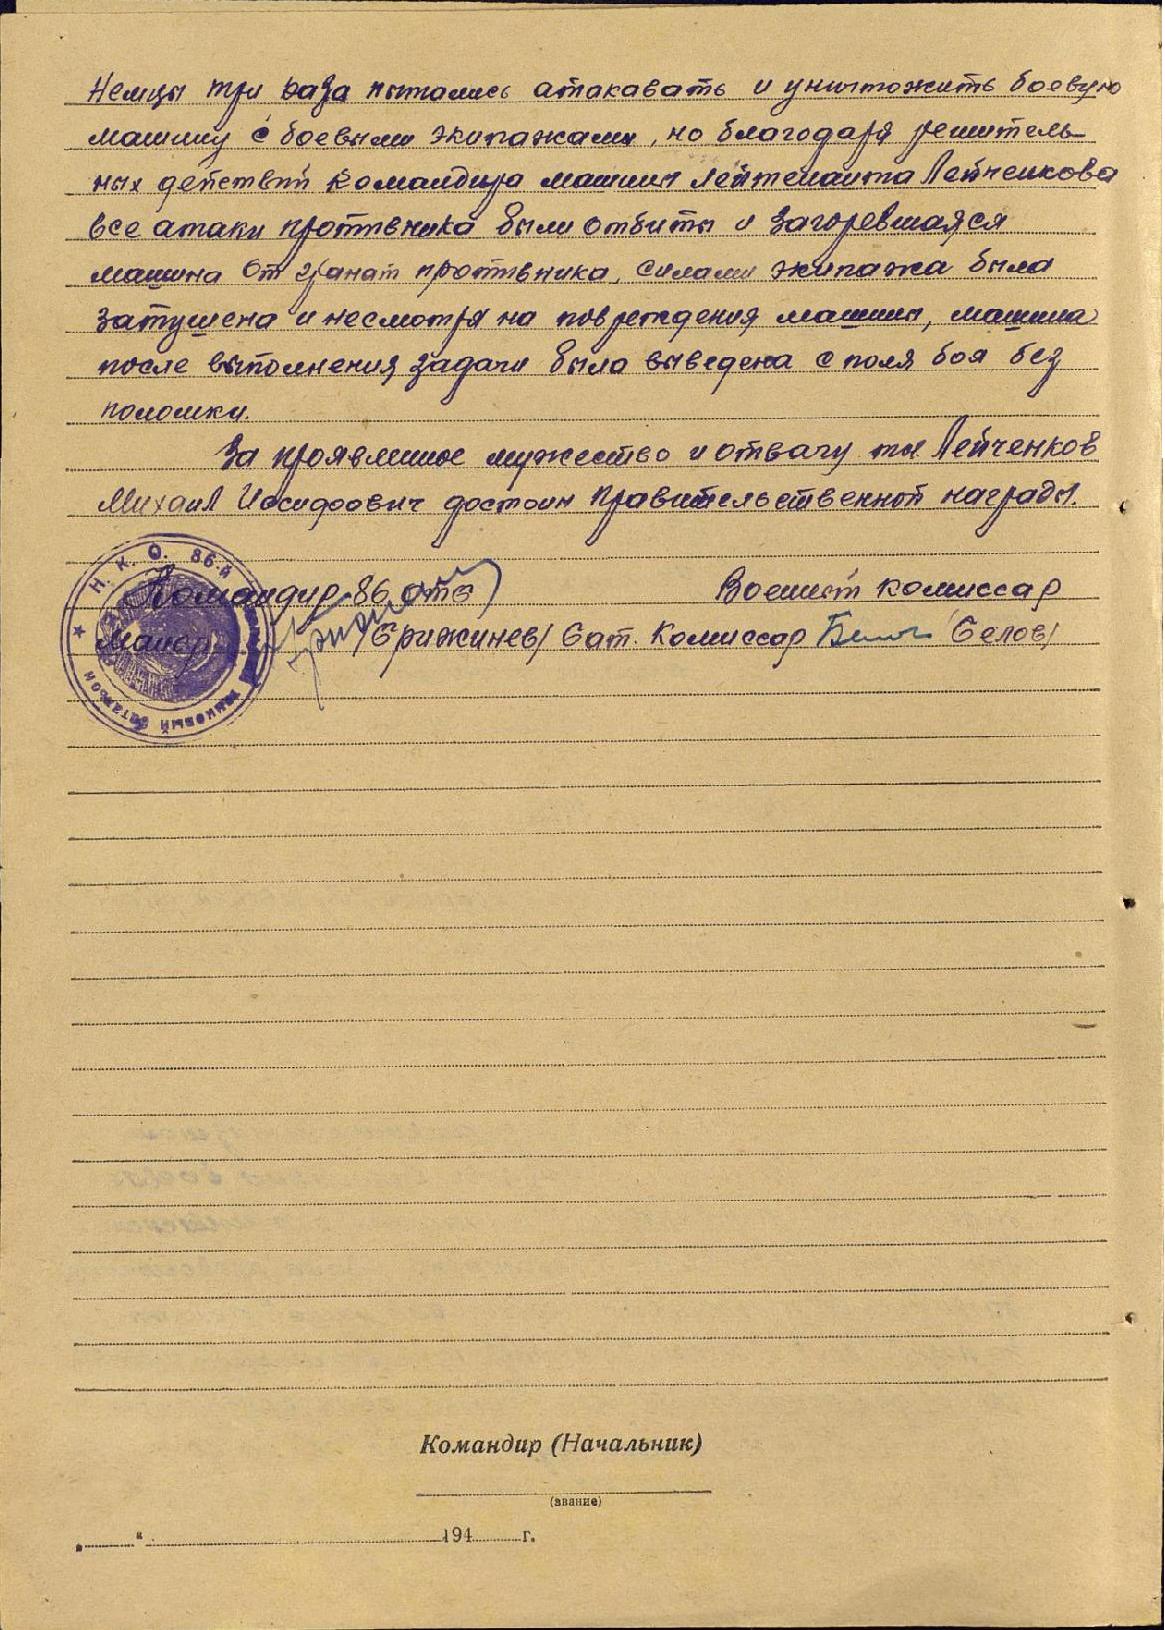 Немцы три раза пытались атакавать и уничтожить боевую
машину с боевыми экипажами, но благодаря решитель-
ных действий командира машины Лейтенанта Лейченкова
все атаки противника были отбиты и загоревшаяся
машина от гранат противника, силами экипажа была
затушена и несмотря на повреждения машины, машина
после выполнения задачи была выведена с поля боя без
поломки.
За проявленное мужество и отвагу тов Лейченков
Михаил Иосифович достоин правительственной награды.
Н. К. О. 86-й
танковый батальон
Командир 86 отб
Военный комиссар
Майор
Бат. Комиссар
/Белов/
Командир (Начальник)
(звание)
„ “ 194 г.